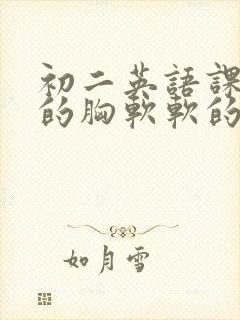 初二英語課
的胸軟軟的
如月雪